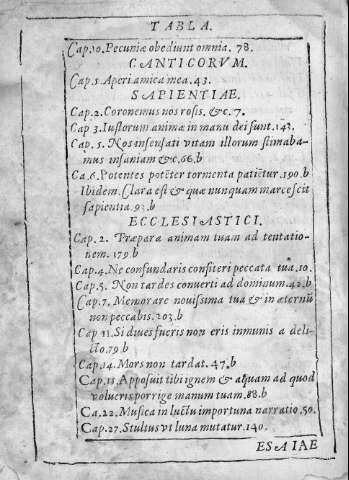 TABLA.
Cap.10. Pecuniæ obediunt omnia. 78.
CANTICORVM.
Cap.5 Aperi amica mea. 43.
SAPIENTIAE.
Cap.2. Coronemus nos rosis, &c. 7.
Cap 3. Iustorum animæ in manu dei sunt. 143.
Cap. 5. Nos insensati vitam illorum stimaba-
mus insaniam &c. 66.b
Ca.6. Potentes potēter tormenta patiētur. 190.b
Ibidem. Clara est & quæ nunquam marcescit
sapientia. 93.b
ECCLESIASTICI.
Cap.2. Præpara animam tuam ad tentatio-
nem. 179.b
Cap.4. Ne confundaris confiteri peccata tua. 10.
Cap.5. Non tardes conuerti ad dominum. 42.b
Cap.7. Memorare nouissima tua & in æternū
non peccabis. 203.b
Cap 11. Si diues fueris non eris inmunis a deli-
cto. 79.b
Cap.14. Mors non tardat. 47.b
Cap.15. Apposuit tibi ignem & aquam ad quod
volueris porrige manum tuam. 88.b
Ca.22. Musica in luctu importuna narratio. 50.
Cap.27. Stultus vt luna mutatur. 140.
ESAIAE